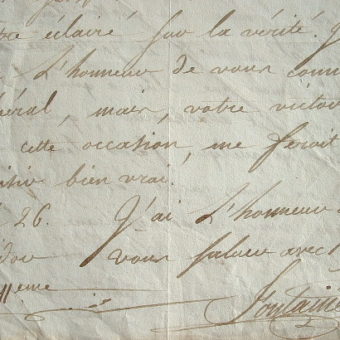 éclairé sur la vérité.
L'honneur de vous
mais, votre
cette occasion, me feroit
bien vrai.
26. J'ai L'honneur
vous saluer avec
eme
Fontaine